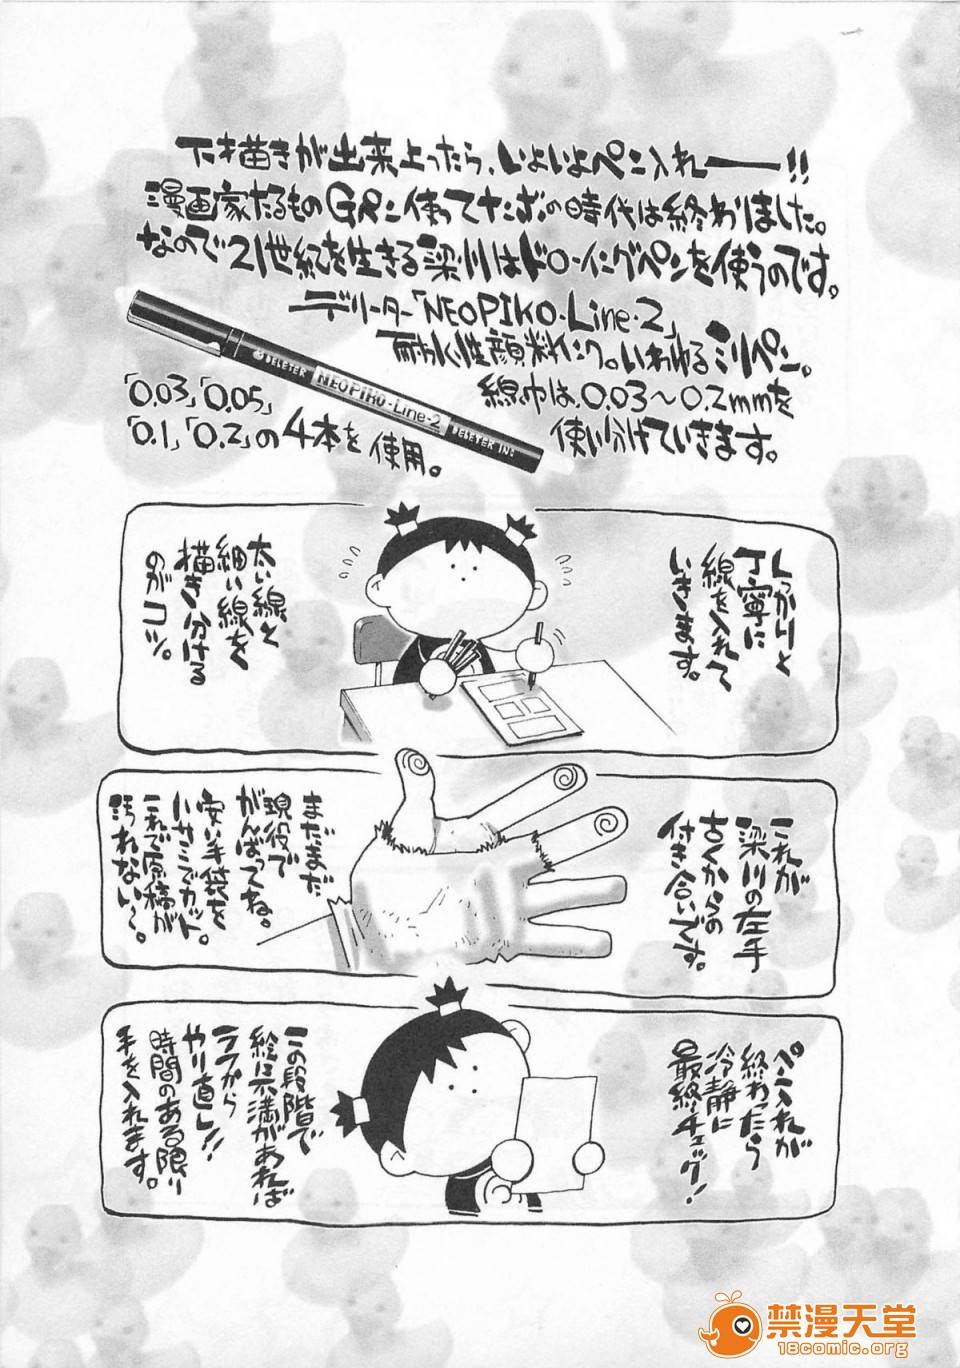 下描きが出来上ったら、いよいよペン入れーー!!
漫画家たるものGペン使ってナンボの時代は終わりました。
なので21世紀を生きる深川はドローイングペンを使うのです。
デリーター「NEOPIKO-Line-2」
耐水性顔料インク。いわゆるミリペン。
線巾は、0.03〜0.2mmを
使い分けていきます。
「0.03」「0.05」
「0.1」「0.2」の4本を使用。
DELETER
NEOPIKO-Line-2
DELETER INC
しっかりと
丁寧に
線を入れて
いきます。
太い線と
細い線を
描き分ける
のがコツ。
これが
深川の左手
古くからの
付き合いです。
まだまだ
現役で
がんばってね。
安い手袋を
ハサミでカット。
これで原稿が
汚れない〜。
ペン入れが
終わったら
冷静に
最終チェック!
この段階で
絵に不満があれば
ラフから
やり直し!!
時間のある限り
手を入れます。
禁漫天堂
18comic.org